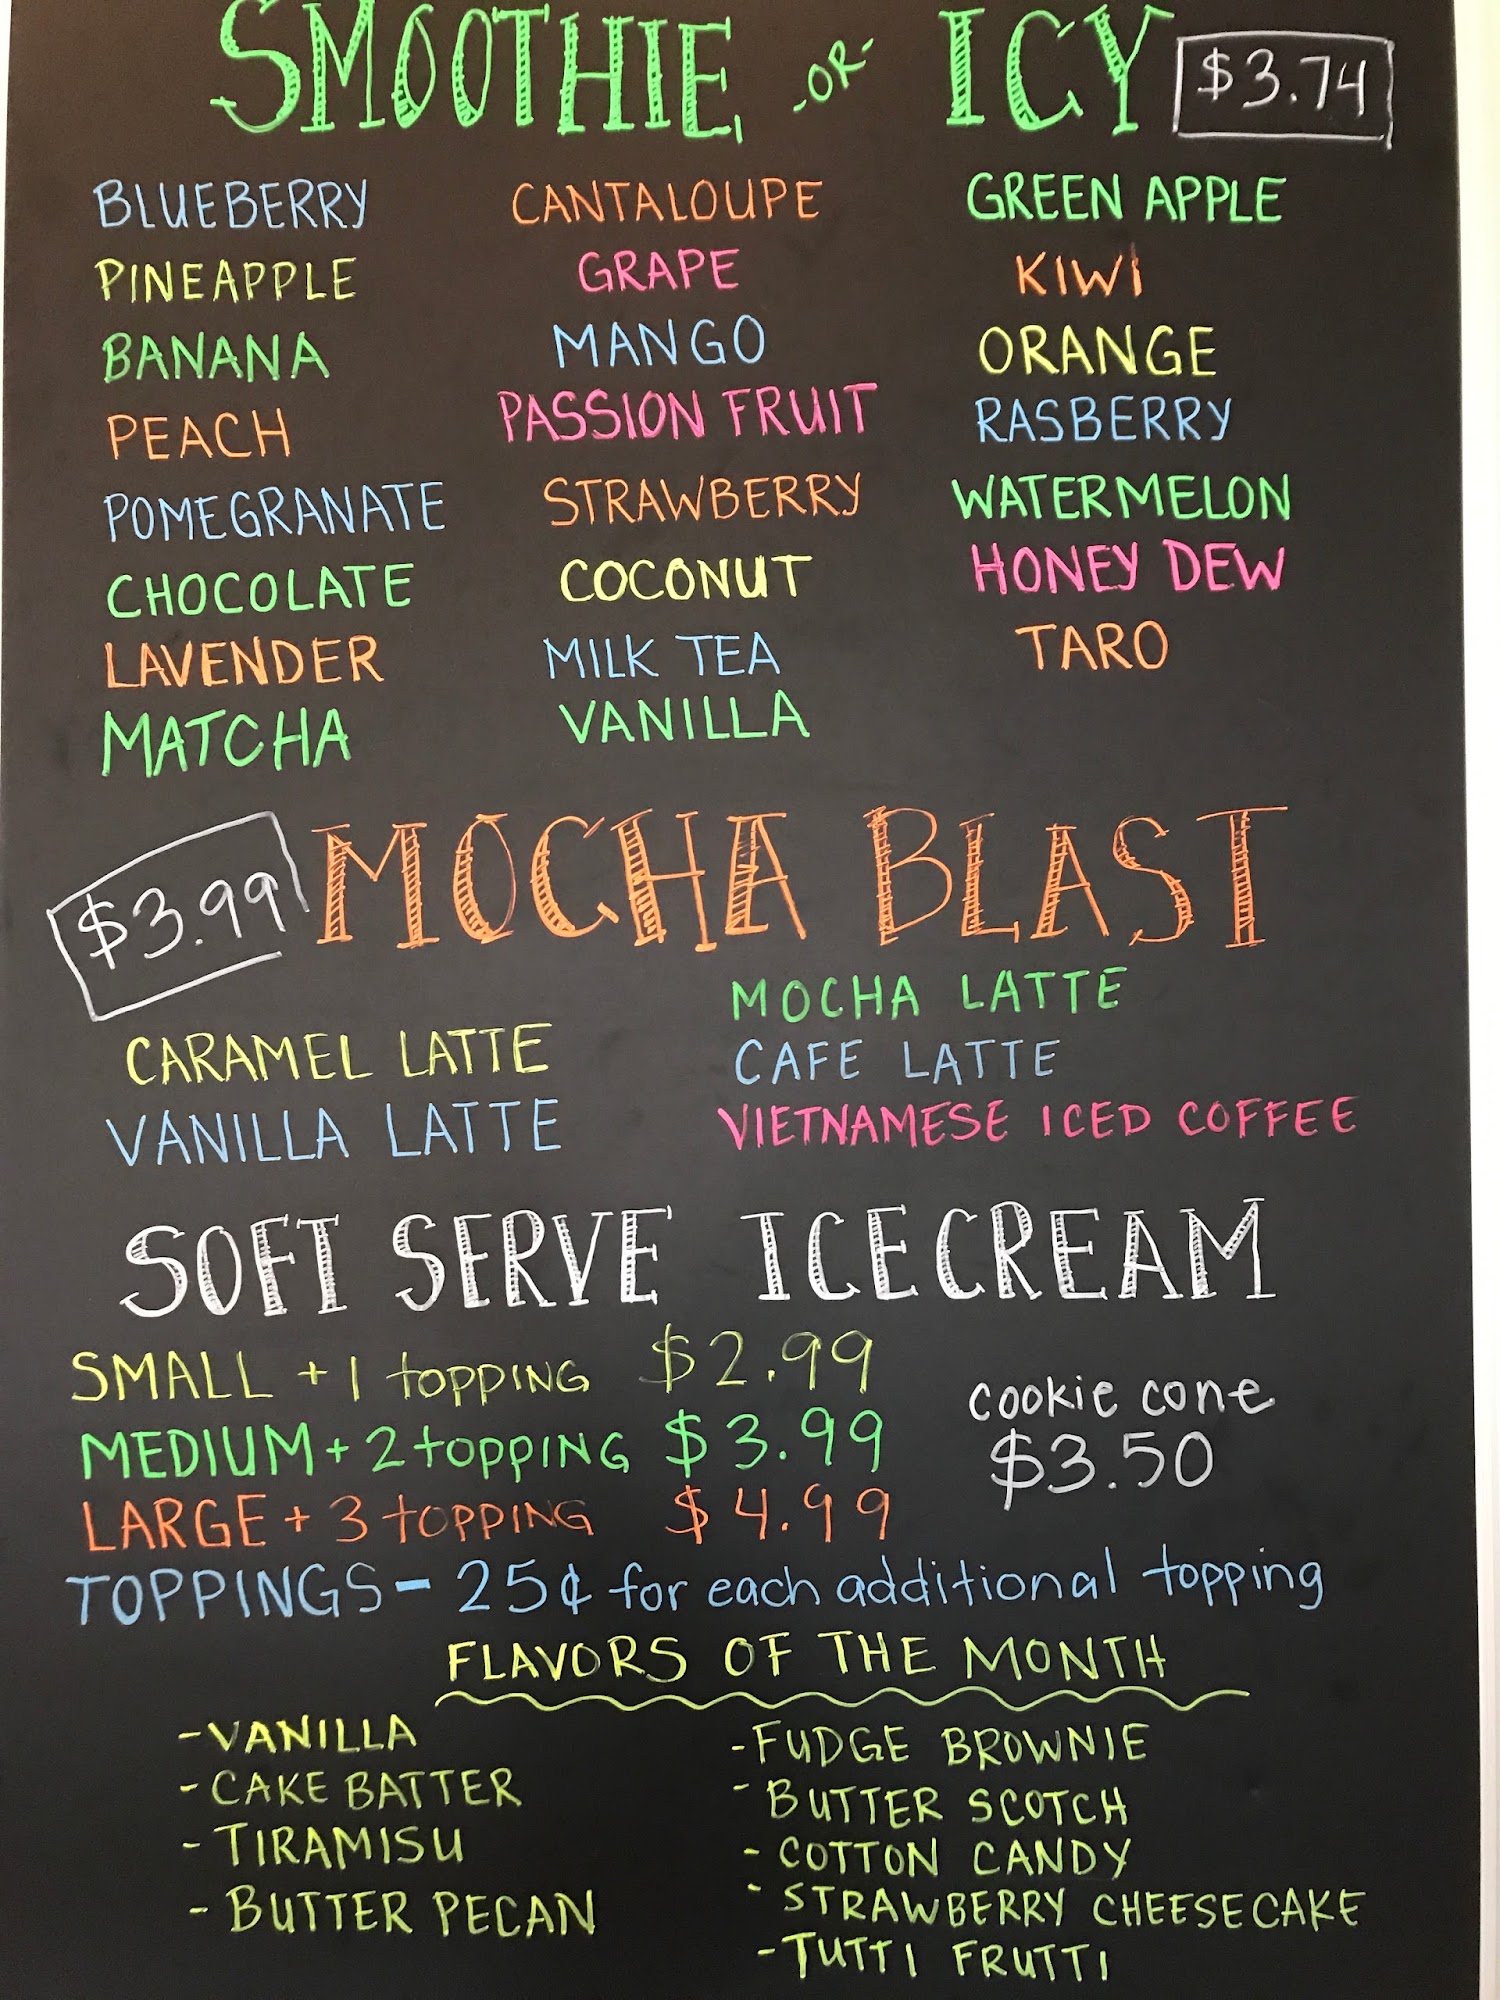 SMOOTHIE -OR- ICY $3.74
BLUEBERRY CANTALOUPE GREEN APPLE
PINEAPPLE GRAPE KIWI
BANANA MANGO ORANGE
PEACH PASSION FRUIT RASBERRY
POMEGRANATE STRAWBERRY WATERMELON
CHOCOLATE COCONUT HONEY DEW
LAVENDER MILK TEA TARO
MATCHA VANILLA
$3.99 MOCHA BLAST
MOCHA LATTE
CARAMEL LATTE CAFE LATTE
VANILLA LATTE VIETNAMESE ICED COFFEE
SOFT SERVE ICECREAM
SMALL + 1 topping $2.99
cookie cone
MEDIUM + 2 topping $3.99
$3.50
LARGE + 3 topping $4.99
TOPPINGS - 25¢ for each additional topping
FLAVORS OF THE MONTH
-VANILLA -FUDGE BROWNIE
-CAKE BATTER -BUTTER SCOTCH
-TIRAMISU -COTTON CANDY
-BUTTER PECAN -STRAWBERRY CHEESECAKE
-TUTTI FRUTTI